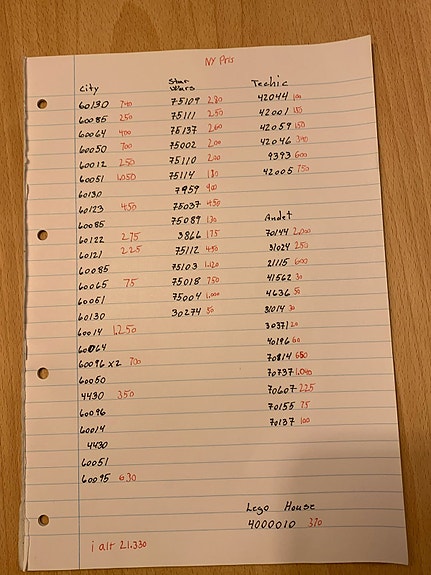 NY Pris
City
60130 740
60085 250
60064 400
60050 700
60012 250
60051 1.050
60130
60123 450
60085
60122 275
60121 225
60085
60065 75
60051
60130
60014 1.250
60064
60096 x2 700
60050
4430 350
60096
60014
4430
60051
60095 630
i alt 21.330
Star
Wars
75109 280
75111 250
75137 260
75002 200
75110 200
75114 180
7959 400
75037 450
75089 120
3866 175
75112 450
75103 1.120
75018 750
75004 1.000
30274 50
Techic
42044 100
42001 150
42059 150
42046 340
9393 600
42005 750
Andet
70144 2.000
31024 250
21115 600
41562 30
4636 50
31014 30
30371 20
40196 60
70814 650
70737 1.040
70607 225
70155 75
70137 100
Lego House
4000010 370